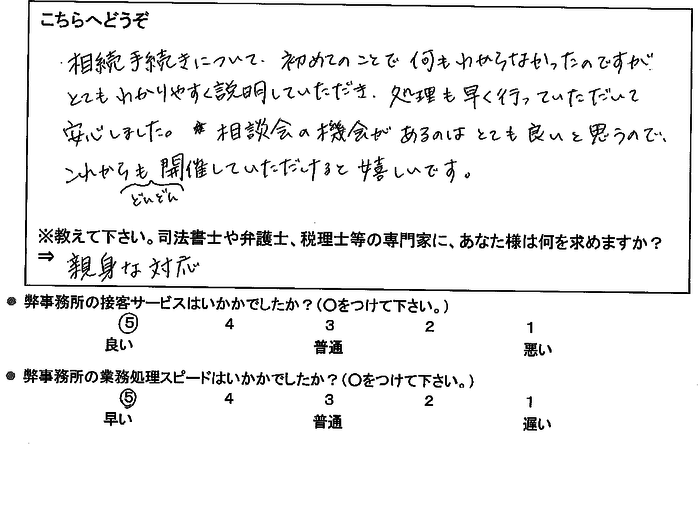 こちらへどうぞ
・相続手続きについて、初めてのことで何もわからなかったのですが、
とてもわかりやすく説明していただき、処理も早く行っていただいて
安心しました。 * 相談会の機会があるのはとても良いと思うので、
これからも開催していただけると嬉しいです。
どんどん
※教えて下さい。司法書士や弁護士、税理士等の専門家に、あなた様は何を求めますか？
⇒ 親身な対応
● 弊事務所の接客サービスはいかかでしたか？(〇をつけて下さい。)
⑤ 4 3 2 1
良い 普通 悪い
● 弊事務所の業務処理スピードはいかかでしたか？(〇をつけて下さい。)
⑤ 4 3 2 1
早い 普通 遅い